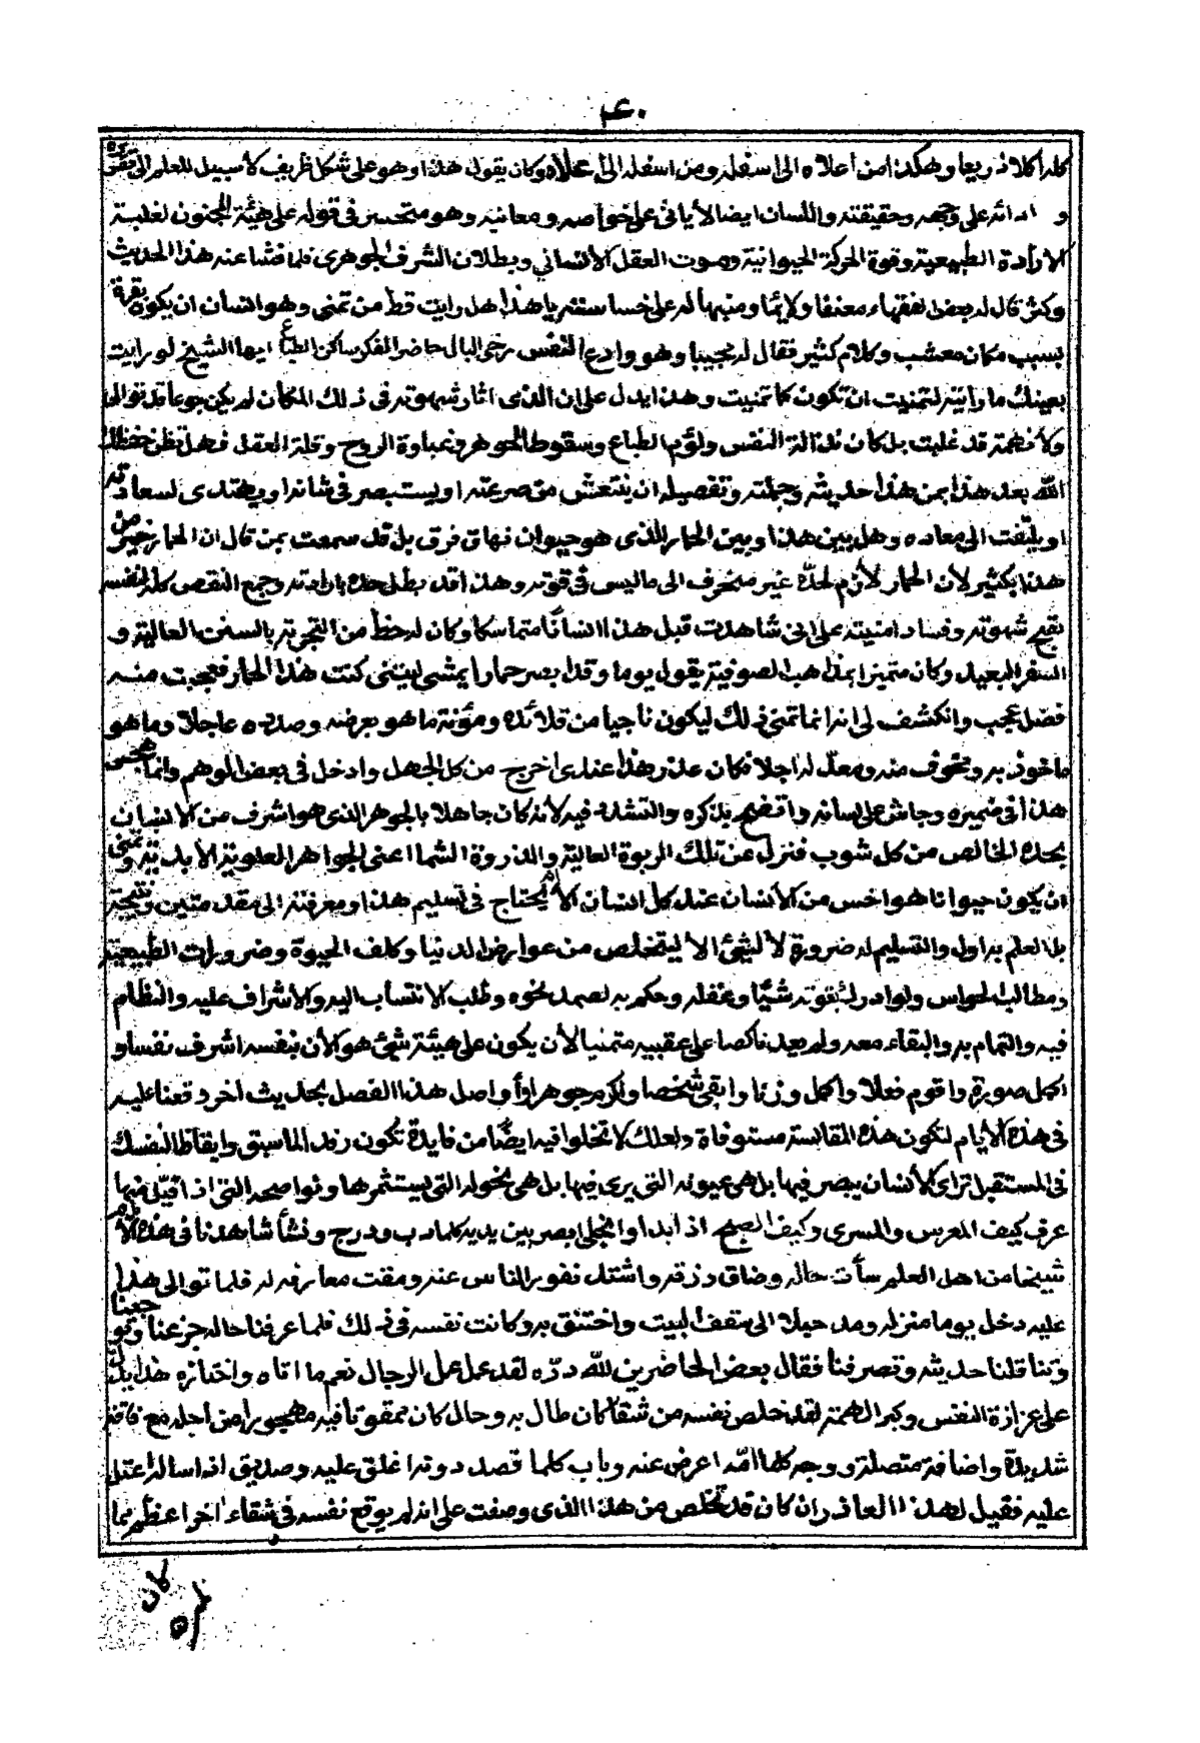 ٤٠
كله اكلا ذريعا وهكذا من اعلاه الى اسفله ومن اسفله الى اعلاه وكان يقول هذا وهو على شكل ظريف لا سبيل للعلم الى
و ادائه على وجهه وحقيقته واللسان ايضا لا ياتى على خواصه ومعانيه وهو متحسر فى قوله على هيئة المجنون لغلبة
الارادة الطبيعية وقوة الحركة الحيوانية وموت العقل الانسانى وبطلان الشرف الجوهرى فلما فشا عنه هذا الحديث
وكثر قال له بعض الفقهاء معنفا ولائما ومنبها له على خساسته يا هذا هل رايت قط من تمنى وهو انسان ان يكون بقرة
بسبب مكان معشب وكلام كثير فقال له مجيبا وهو وادع النفس رخى البال حاضر الفكر ساكن الطباع ايها الشيخ لو رايت
بعينك ما رايته لتمنيت ان تكون كما تمنيت وهذا يدل على ان الذى اثار شهوته فى ذلك المكان لم يكن جوعا قد توالى
ولا نهمة قد غلبت بل كان نذالة النفس ولؤم الطباع وسقوط الجوهر وغباوة الروح وقلة العقل فهل تظن حفظك
الله بعد هذا بمن هذا حديثه وجملته وتفصيله ان ينتعش من صرعته او يستبصر فى شانه او يهتدى لسعادته
او يلتفت الى معاده وهل بين هذا وبين الحمار الذى هو حيوان نهاق فرق بل قد سمعت بمن قال ان الحمار خير من
هذا بكثير لان الحمار لازم لحده غير منحرف الى ما ليس فى قوته وهذا قد بطل حده بارادته وجمع النقص كله لنفسه
بقبح شهوته وفساد امنيته على انى شاهدت قبل هذا انسانا متماسكا وكان له حظ من التجربة بالسنن العالية و
السفر البعيد وكان متميزا بمذاهب الصوفية يقول يوما وقد ابصر حمارا يمشى ليتنى كنت هذا الحمار فعجبت منه
فضل عجب وانكشف لى انه انما تمنى ذلك ليكون ناجيا من قلائده ومؤنة ما هو بعرضه وصدده عاجلا وما هو
ماخوذ به ومخوف منه ومعد له اجلا فكان عذر هذا عندى اخرج من كل الجهل وادخل فى بعض الوهم وانما هجس
هذا فى ضميره وجاش على لسانه وافتضح بذكره والتشدد فيه لانه كان جاهلا بالجوهر الذى هو اشرف من الانسان
بحده الخالص من كل شوب فنزل عن تلك الربوة العالية والذروة الشما اعنى الجواهر العلوية الابدية وتمنى
ان يكون حيوانا هو اخس من الانسان عند كل انسان الا يحتاج فى تسليم هذا ومعرفته الى مقدمتين ونتيجة
بل العلم به اول والتسليم له ضرورة لا لشئ الا ليتخلص من عوارض الدنيا وكلف الحيوة وضرورات الطبيعية
ومطالب الحواس ولو ادرك بقوته شيئا وعقله وحكم به لصمد نحوه وطلب الانتساب اليه والاشراف عليه والنظام
فيه والتمام به والبقاء معه ولم يعد ناكصا على عقبيه متمنيا لان يكون على هيئة شئ هو كان بنفسه اشرف نفسا و
اكمل صورة واقوم فعلا واكمل وزنا وابقى شخصا واكرم جوهرا واواصل هذا الفصل بحديث اخر دقعنا عليه
فى هذه الايام لتكون هذه المقابسة مستوفاة ولعلك لا تخلوا فيه ايضا من فايدة تكون رفدا لما سبق وايقاظا لنفسك
فى المستقبل تراى كالانسان يبصر فيها بل هى عيونه التى يرى فيها بل هى نخوله التى يستثمرها ونواصحه التى اذا اقبل منها
عرف كيف المعرس والمسرى وكيف الصبح اذا بدا وانجلى ابصر بين يديه كلما دب ودرج ونشا شاهدنا فى هذه الايام
شيخا من اهل العلم سأت حاله وضاق رزقه واشتد نفور الناس عنه ومقت معارفه له فلما توالى هذا
عليه دخل يوما منزله ومد حبلا الى سقف البيت واختنق به وكانت نفسه فى ذلك فلما عرفنا حاله جزعنا وتوجعنا
وتناقلنا حديثه وتصرفنا فقال بعض الحاضرين لله دره لقد عمل عمل الرجال نعم ما اتاه واختاره هذا يدل
على عزازة النفس وكبر الهمة لقد خلص نفسه من شقا كان طال به وحال كان ممقوتا فيه مهجورا من اجله مع فاقة
شديدة واضافة متصلة ووجه كلما امه اعرض عنه وباب كلما قصد دونه اغلق عليه وصديق اذا ساله اعتل
عليه فقيل لهذا العاذر ان كان قد تخلص من هذا الذى وصفت على انه لم يوقع نفسه فى شقاء اخر اعظم مما
كان